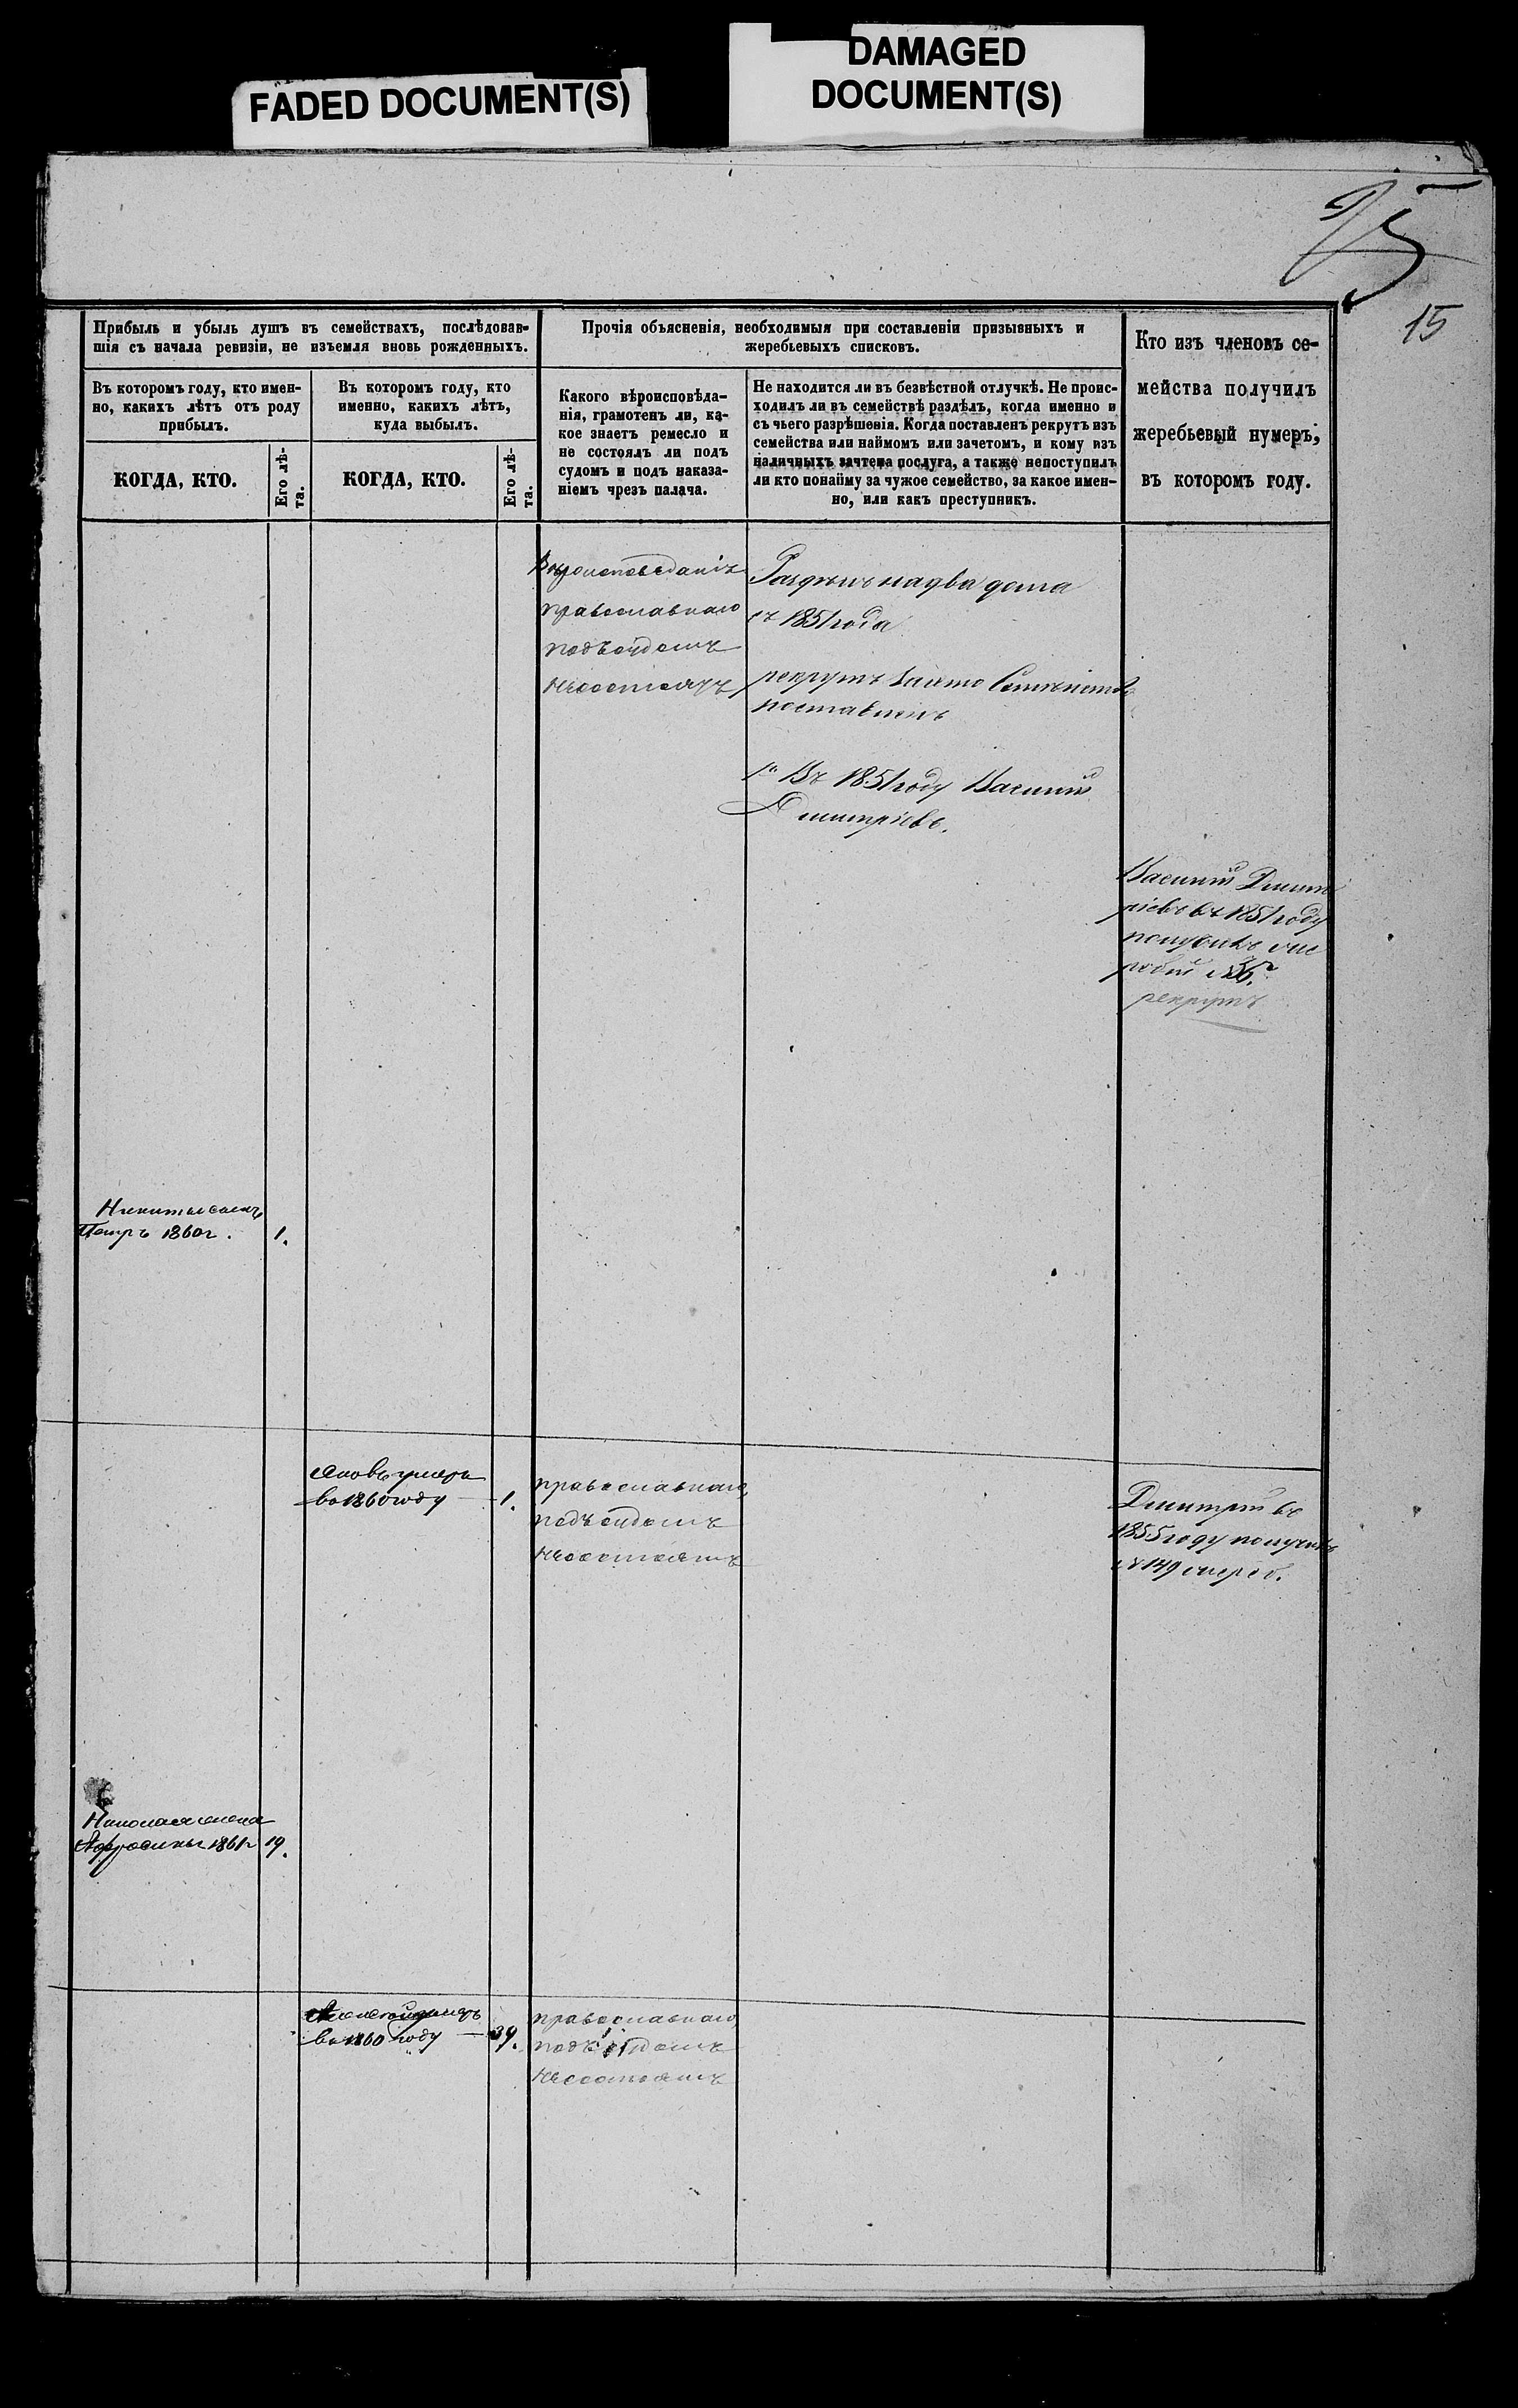 FADED DOCUMENT(S)
DAMAGED
DOCUMENT(S)
15
Прибыль и убыль душъ въ семействахъ, послѣдовав-
шія съ начала ревизіи, не изъемля вновь рожденныхъ.
Прочія объясненія, необходимыя при составленіи призывныхъ и
жеребьевыхъ списковъ.
Кто изъ членовъ се-
мейства получилъ
жеребьевый нумеръ,
въ которомъ году.
Въ которомъ году, кто имен-
но, какихъ лѣтъ отъ роду
прибылъ.
Въ которомъ году, кто
именно, какихъ лѣтъ,
куда выбылъ.
Какого вѣроисповѣда-
нія, грамотенъ ли, ка-
кое знаетъ ремесло и
не состоялъ ли подъ
судомъ и подъ наказа-
ніемъ чрезъ палача.
Не находится ли въ безвѣстной отлучкѣ. Не проис-
ходилъ ли въ семействѣ раздѣлъ, когда именно и
съ чьего разрѣшенія. Когда поставленъ рекрутъ изъ
семейства или наймомъ или зачетомъ, и кому изъ
наличныхъ зачтена послуга, а также непоступилъ
ли кто понайму за чужое семейство, за какое имен-
но, или какъ преступникъ.
КОГДА, КТО.
Его лѣ-
та.
КОГДА, КТО.
Его лѣ-
та.
Вѣроисповеданіе
православнаго
подъ судомъ
несостоятъ
Раздѣлъ на два дома
съ 1851 года
рекрутъ
поставленъ
Въ 1851 году Василий
Дмитріевъ.
Василий Дмит
ріевъ въ 1851 году
получилъ

рекрутъ
Никиты сынъ
Петръ 1860 г. 1.
Яковъ умеръ
во 1860 году 1.
православнаго
подъ судомъ
несостоятъ
Дмитрий въ
1855 году получилъ
№ 149 жереб.
Николая жена
Афросинья 1861 г 19.
умеръ
во 1860 году 39.
православнаго
подъ судомъ
несостоятъ